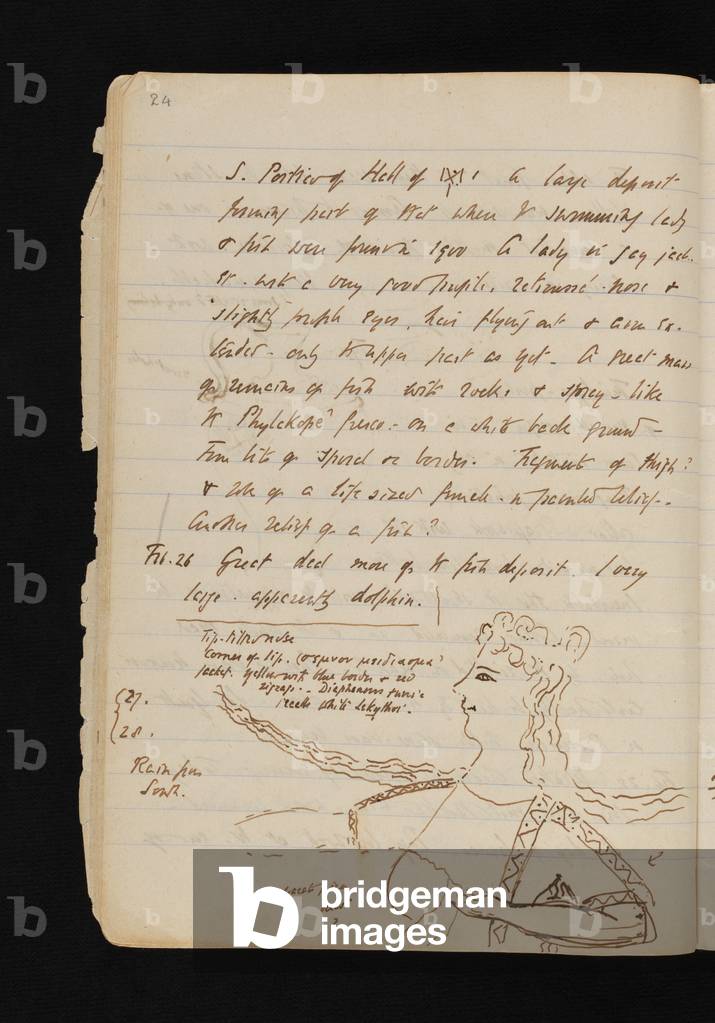 24
S. Portico of Hall of : A large deposit
forming part of that where the swimming lady
& fish were found in 1900 A lady in gay jack-
et. with a very good profile, retroussé nose &
slightly purple eyes, hair flying out & arm ex-
tended - only the upper part as yet - A great mass
of remains of fish with rocks & spray - like
the Phylakopê fresco - on a white back ground -
Fine bits of spiral border. Fragment of thigh?
& of a life sized female in painted relief -
Another relief of a fish?
Feb. 26 Great deal more of the fish deposit. 1 very
large. apparently dolphin.
Tip-tilted nose
Corner of lip. (σεμνον μειδιασμα
jacket. yellow with blue border & red
zigzags - Diaphanous tunic
recalls white lekythoi.
27.
28.
Rain from
South.
b
bridgeman
images